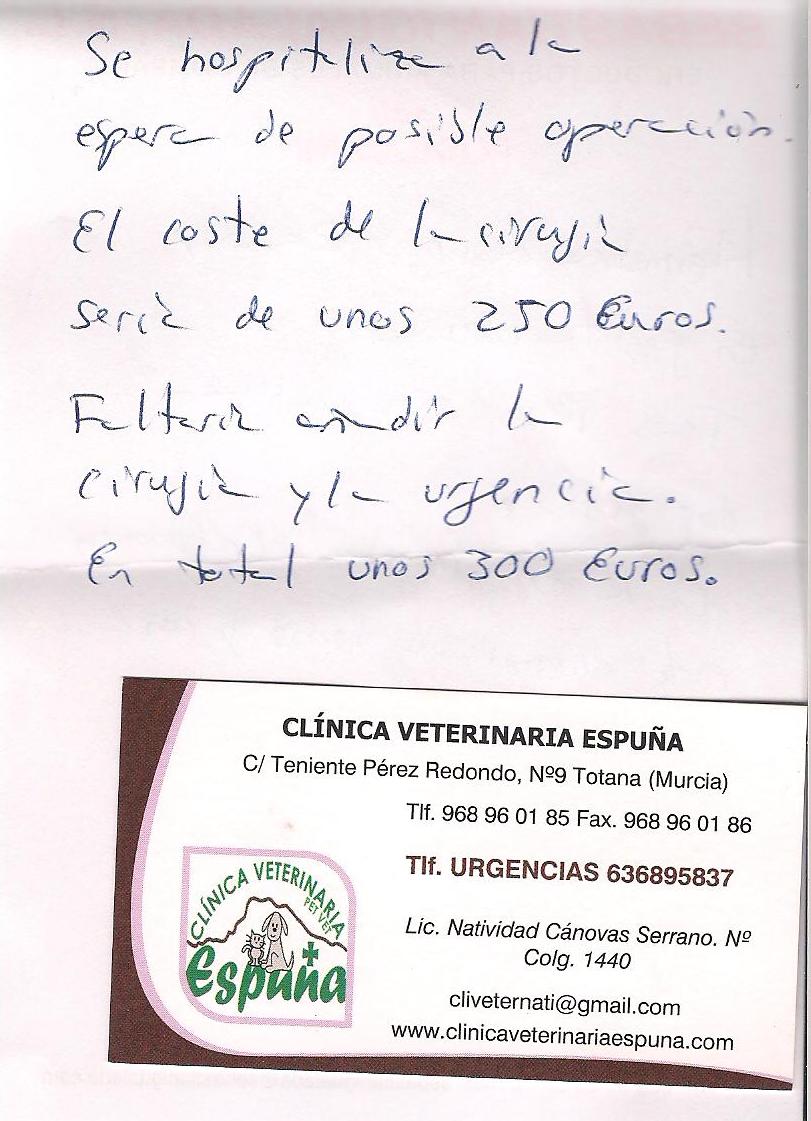 Se hospitaliza a la
espera de posible operación.
El coste de la cirugía
sería de unos 250 Euros.
Faltaría añadir la
cirugía y la urgencia.
En total unos 300 Euros.
CLÍNICA VETERINARIA ESPUÑA
C/ Teniente Pérez Redondo, Nº9 Totana (Murcia)
Tlf. 968 96 01 85 Fax. 968 96 01 86
Tlf. URGENCIAS 636895837
CLÍNICA VETERINARIA
PET VET
Espuña
Lic. Natividad Cánovas Serrano. Nº
Colg. 1440
cliveternati@gmail.com
www.clinicaveterinariaespuna.com